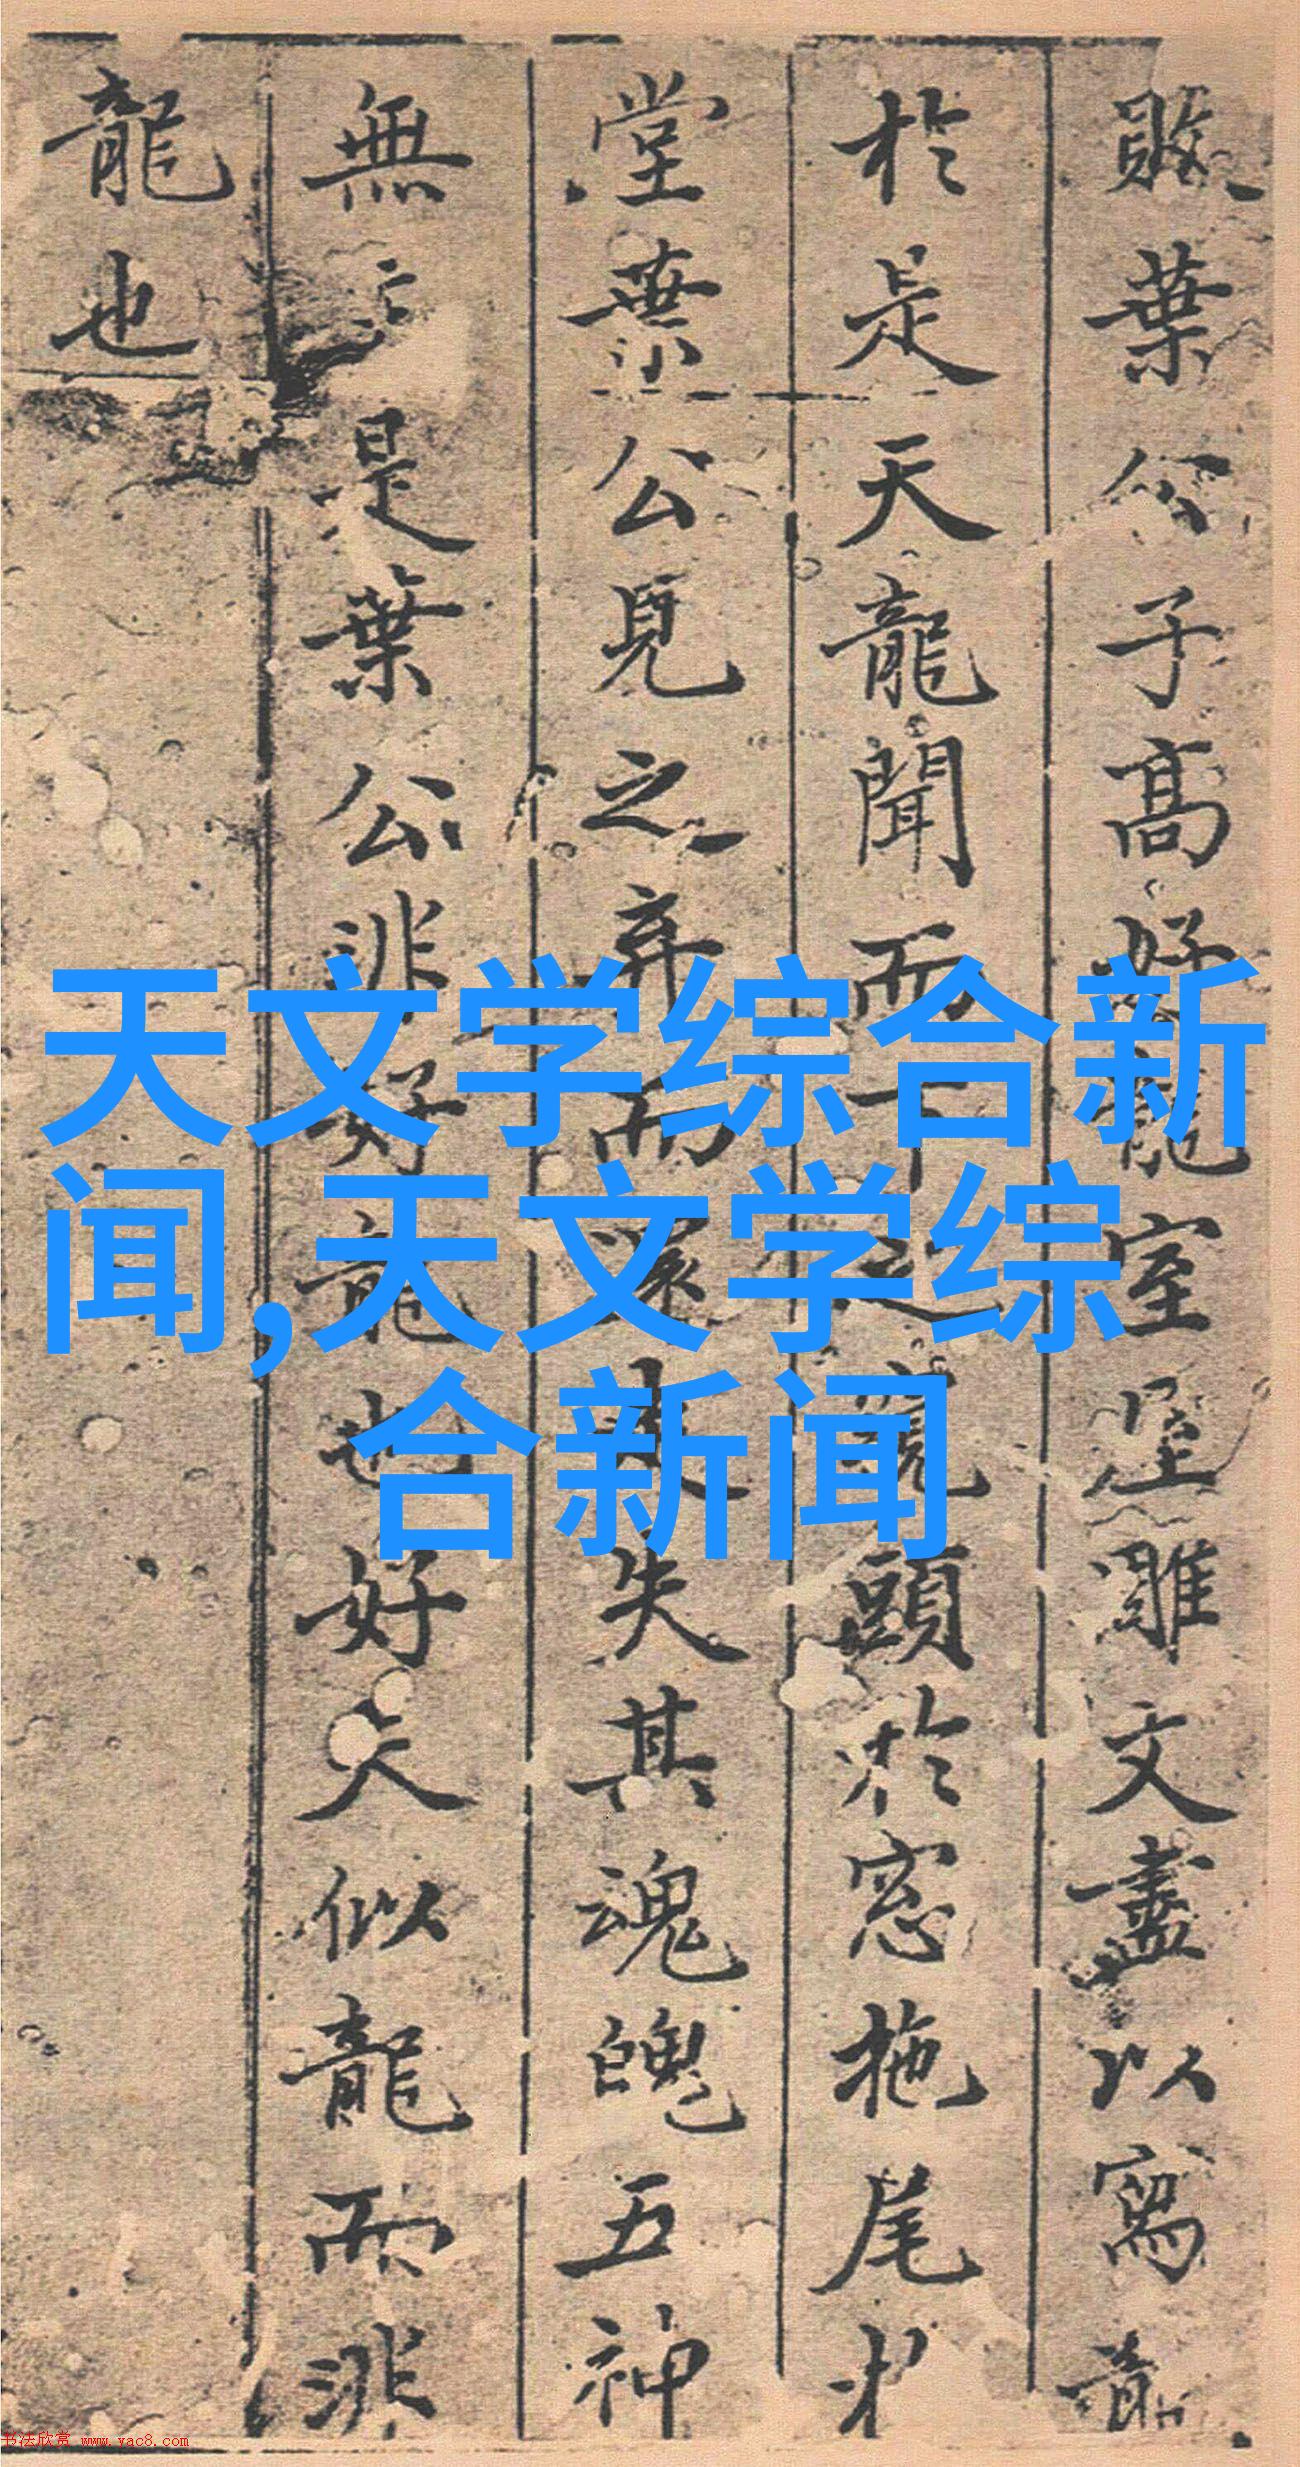 葉公子髙好龍室屋雕文盡以寫龍
於是天龍聞而下之窺頭於窓拖尾於
堂葉公見之弃而還走失其魂魄五神
無主是葉公非好龍也好夫似龍而非
龍也
天文学综合新
闻,天文学综
合新闻
书法欣赏 www.yac8.com